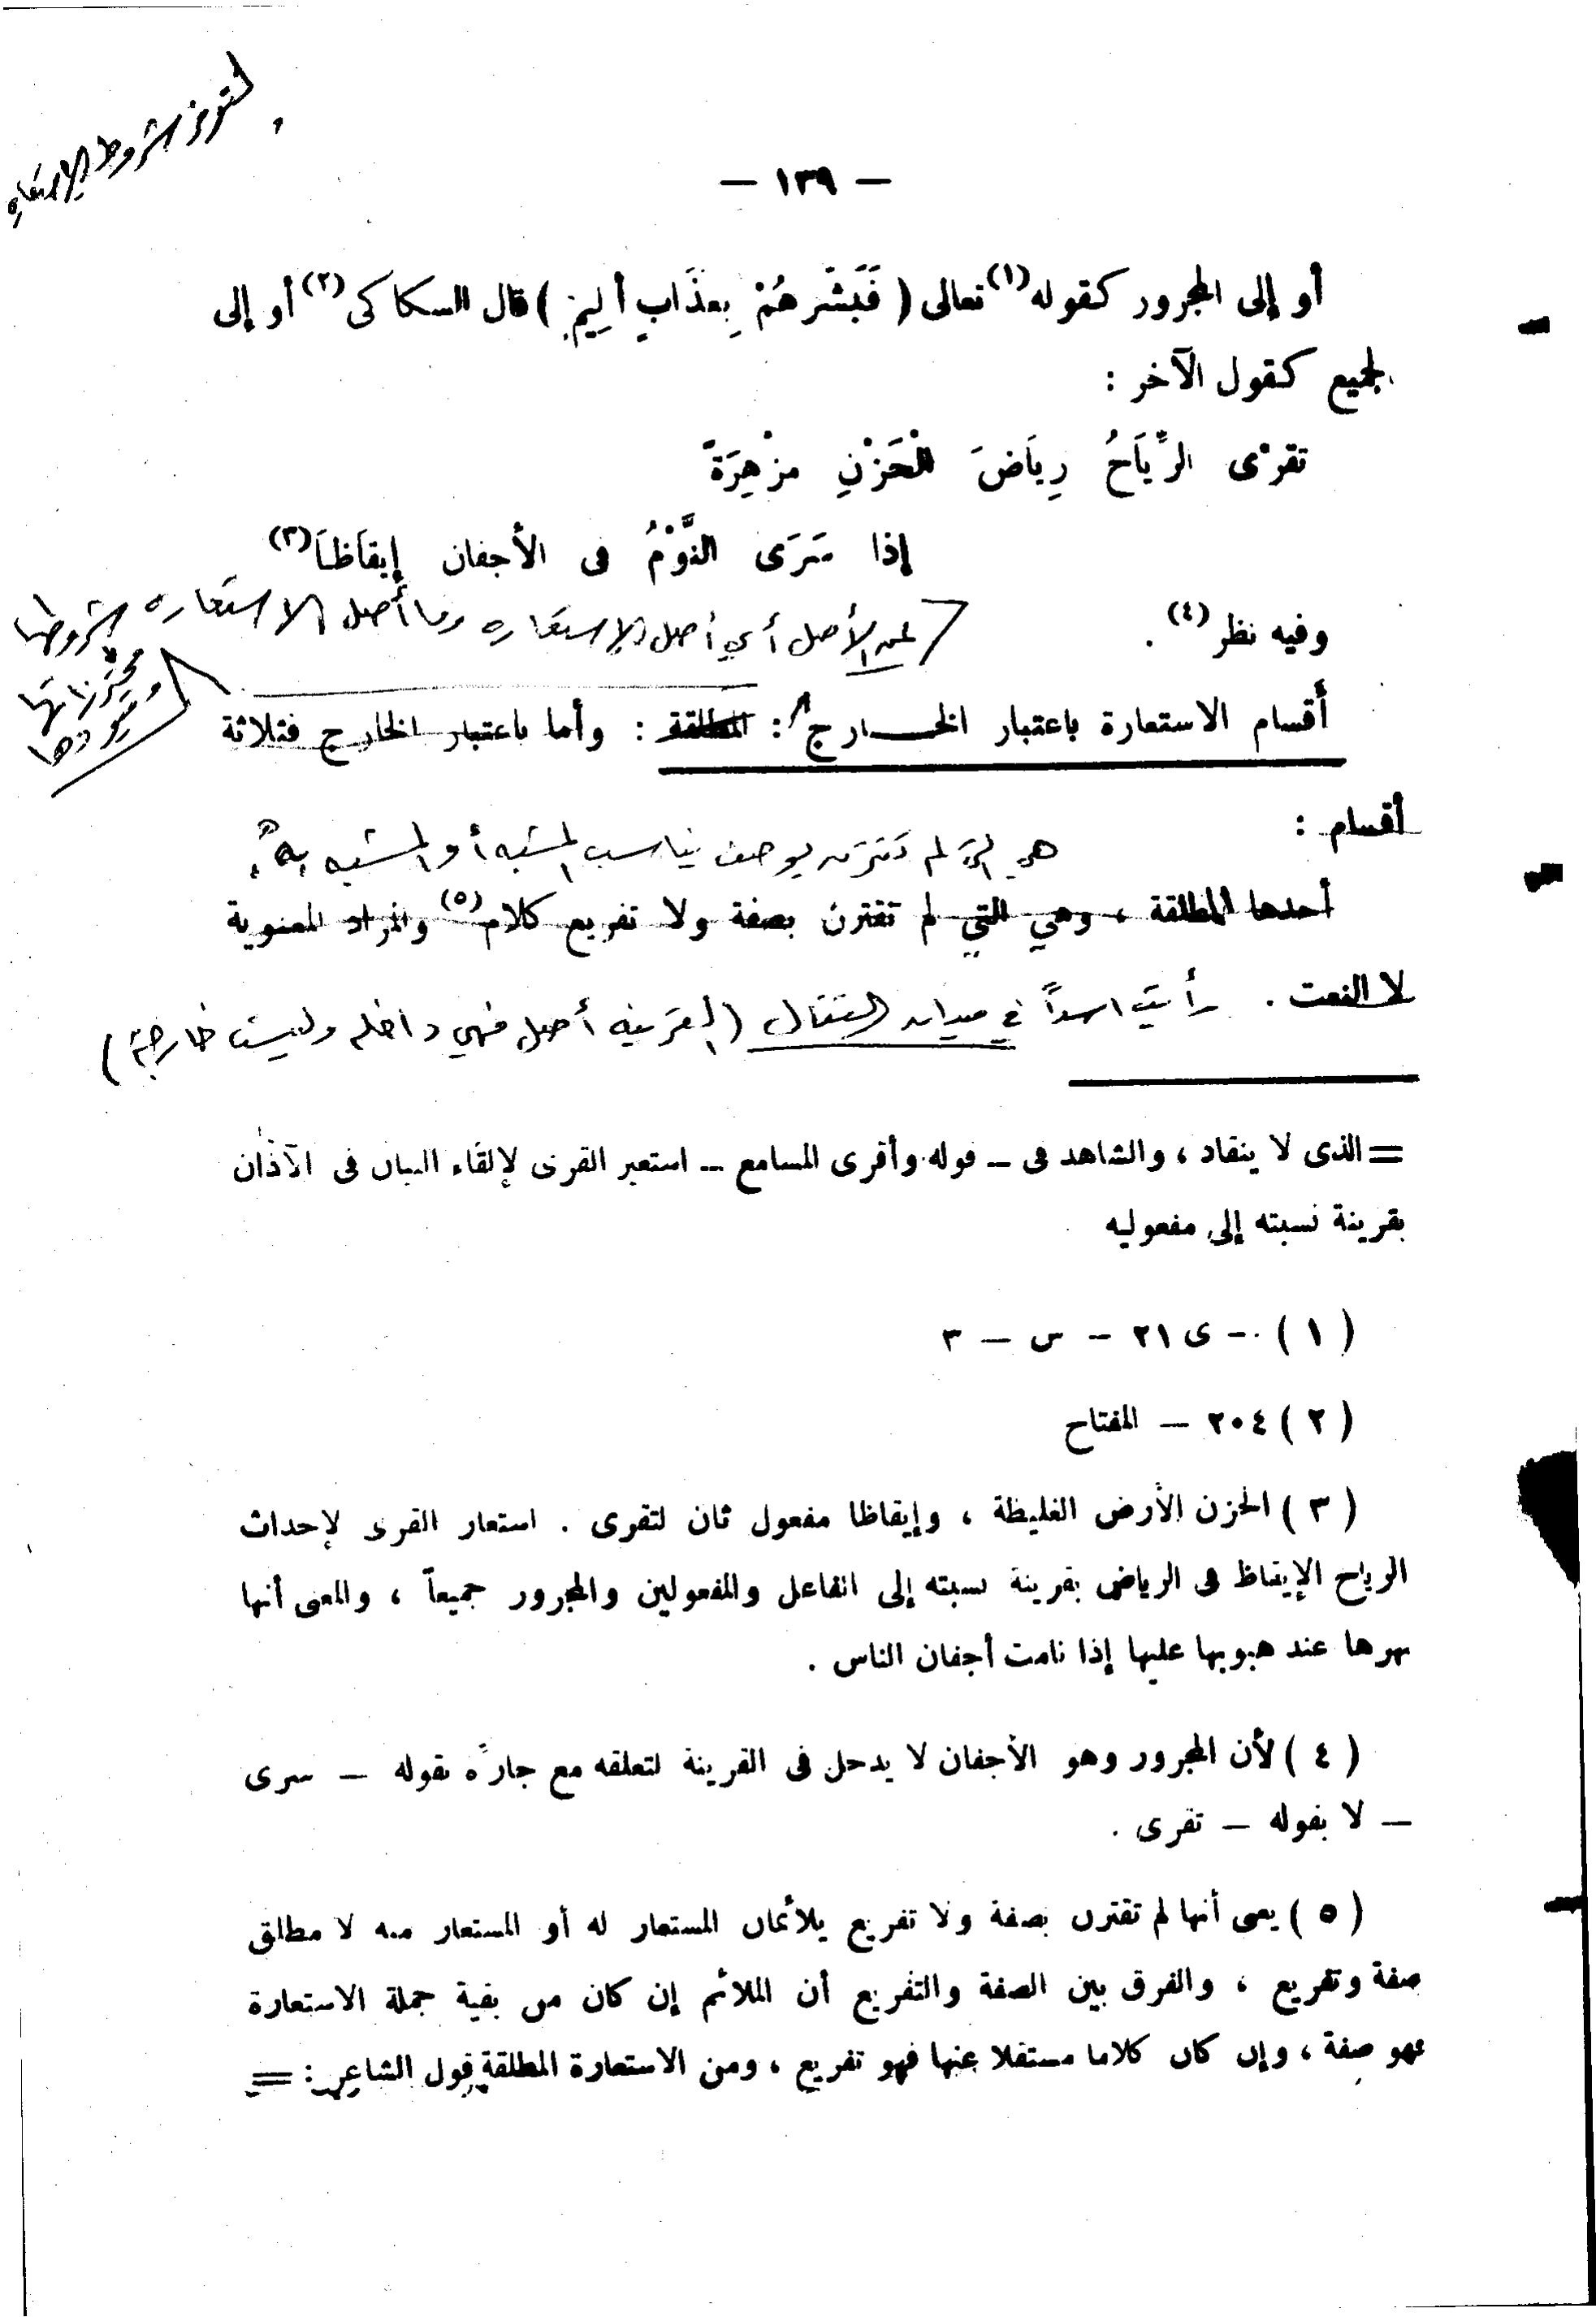 لتوفر شروط الاستعارة
— ١٣٩ —
أو إلى المجرور كقوله (١) تعالى ( فَبَشِّرهُمْ بِعذَابٍ ألِيمٍ ) قال السكاكى (٢) أو إلى
لجميع كقول الآخر :
تقرْى الرِّيَاحُ رِيَاضَ الْحَزْنِ مزْهِرَةً
إذا سَرَى النَّوْمُ فى الأجفان إيقاَظاَ (٣)
وفيه نظر (٤) .
عن الأصل أي أصل الاستعارة وما أصل الاستعارة شروطها
ومحترزاتها
أقسام الاستعارة باعتبار الخارج : المطلقة : وأما باعتبار الخارج فثلاثة
أقسام :
هي التي لم تقترن بوصف يناسب المشبه أو المشبه به
أحدها المطلقة ، وهي التي لم تقترن بصفة ولا تفريع كلام (٥) والمراد المعنوية
لا النعت .
رأيت اسداً في ميدان القتال (القرينه أصل فهي داخله وليست خارجة)
= الذى لا ينقاد ، والشاهد فى – قوله وأقرى المسامع – استعير القرى لإلقاء البيان فى الآذان
بقرينة نسبته إلى مفعوليه
( ١ ) – ى ٢١ – س – ٣
( ٢ ) ٢٠٤ – المفتاح
( ٣ ) الحزن الأرض الغليظة ، وإيقاظا مفعول ثان لتقرى . استعار القرى لإحداث
الرياح الإيقاظ فى الرياض بقرينة نسبته إلى الفاعل والمفعولين والمجرور جميعاً ، والمعنى أنها
تهزها عند هبوبها عليها إذا نامت أجفان الناس .
( ٤ ) لأن المجرور وهو الأجفان لا يدخل فى القرينة لتعلقه مع جاره بقوله – سرى
– لا بقوله – تقرى .
( ٥ ) يعنى أنها لم تقترن بصفة ولا تفريع يلائمان المستعار له أو المستعار منه لا مطلق
صفة وتفريع ، والفرق بين الصفة والتفريع أن الملائم إن كان من بقية جملة الاستعارة
فهو صفة ، وإن كان كلاما مستقلا عنها فهو تفريع ، ومن الاستعارة المطلقة قول الشاعر : =